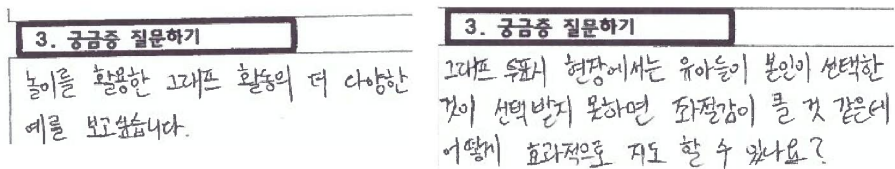 3. 궁금증 질문하기
놀이를 활용한 그래프 활동의 더 다양한
예를 보고싶습니다.
3. 궁금증 질문하기
그래프 투표시 현장에서는 유아들이 본인이 선택한
것이 선택받지 못하면 좌절감이 클 것 같은데
어떻게 효과적으로 지도 할 수 있나요?